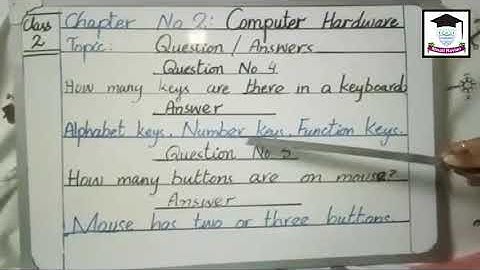 Class 2
Chapter No 2: Computer Hardware
Topic: Question / Answers
Question No 4
How many keys are there in a keyboard
Answer
Alphabet keys, Number keys, Function keys.
Question No 5
How many buttons are on mouse?
Answer
Mouse has two or three buttons.